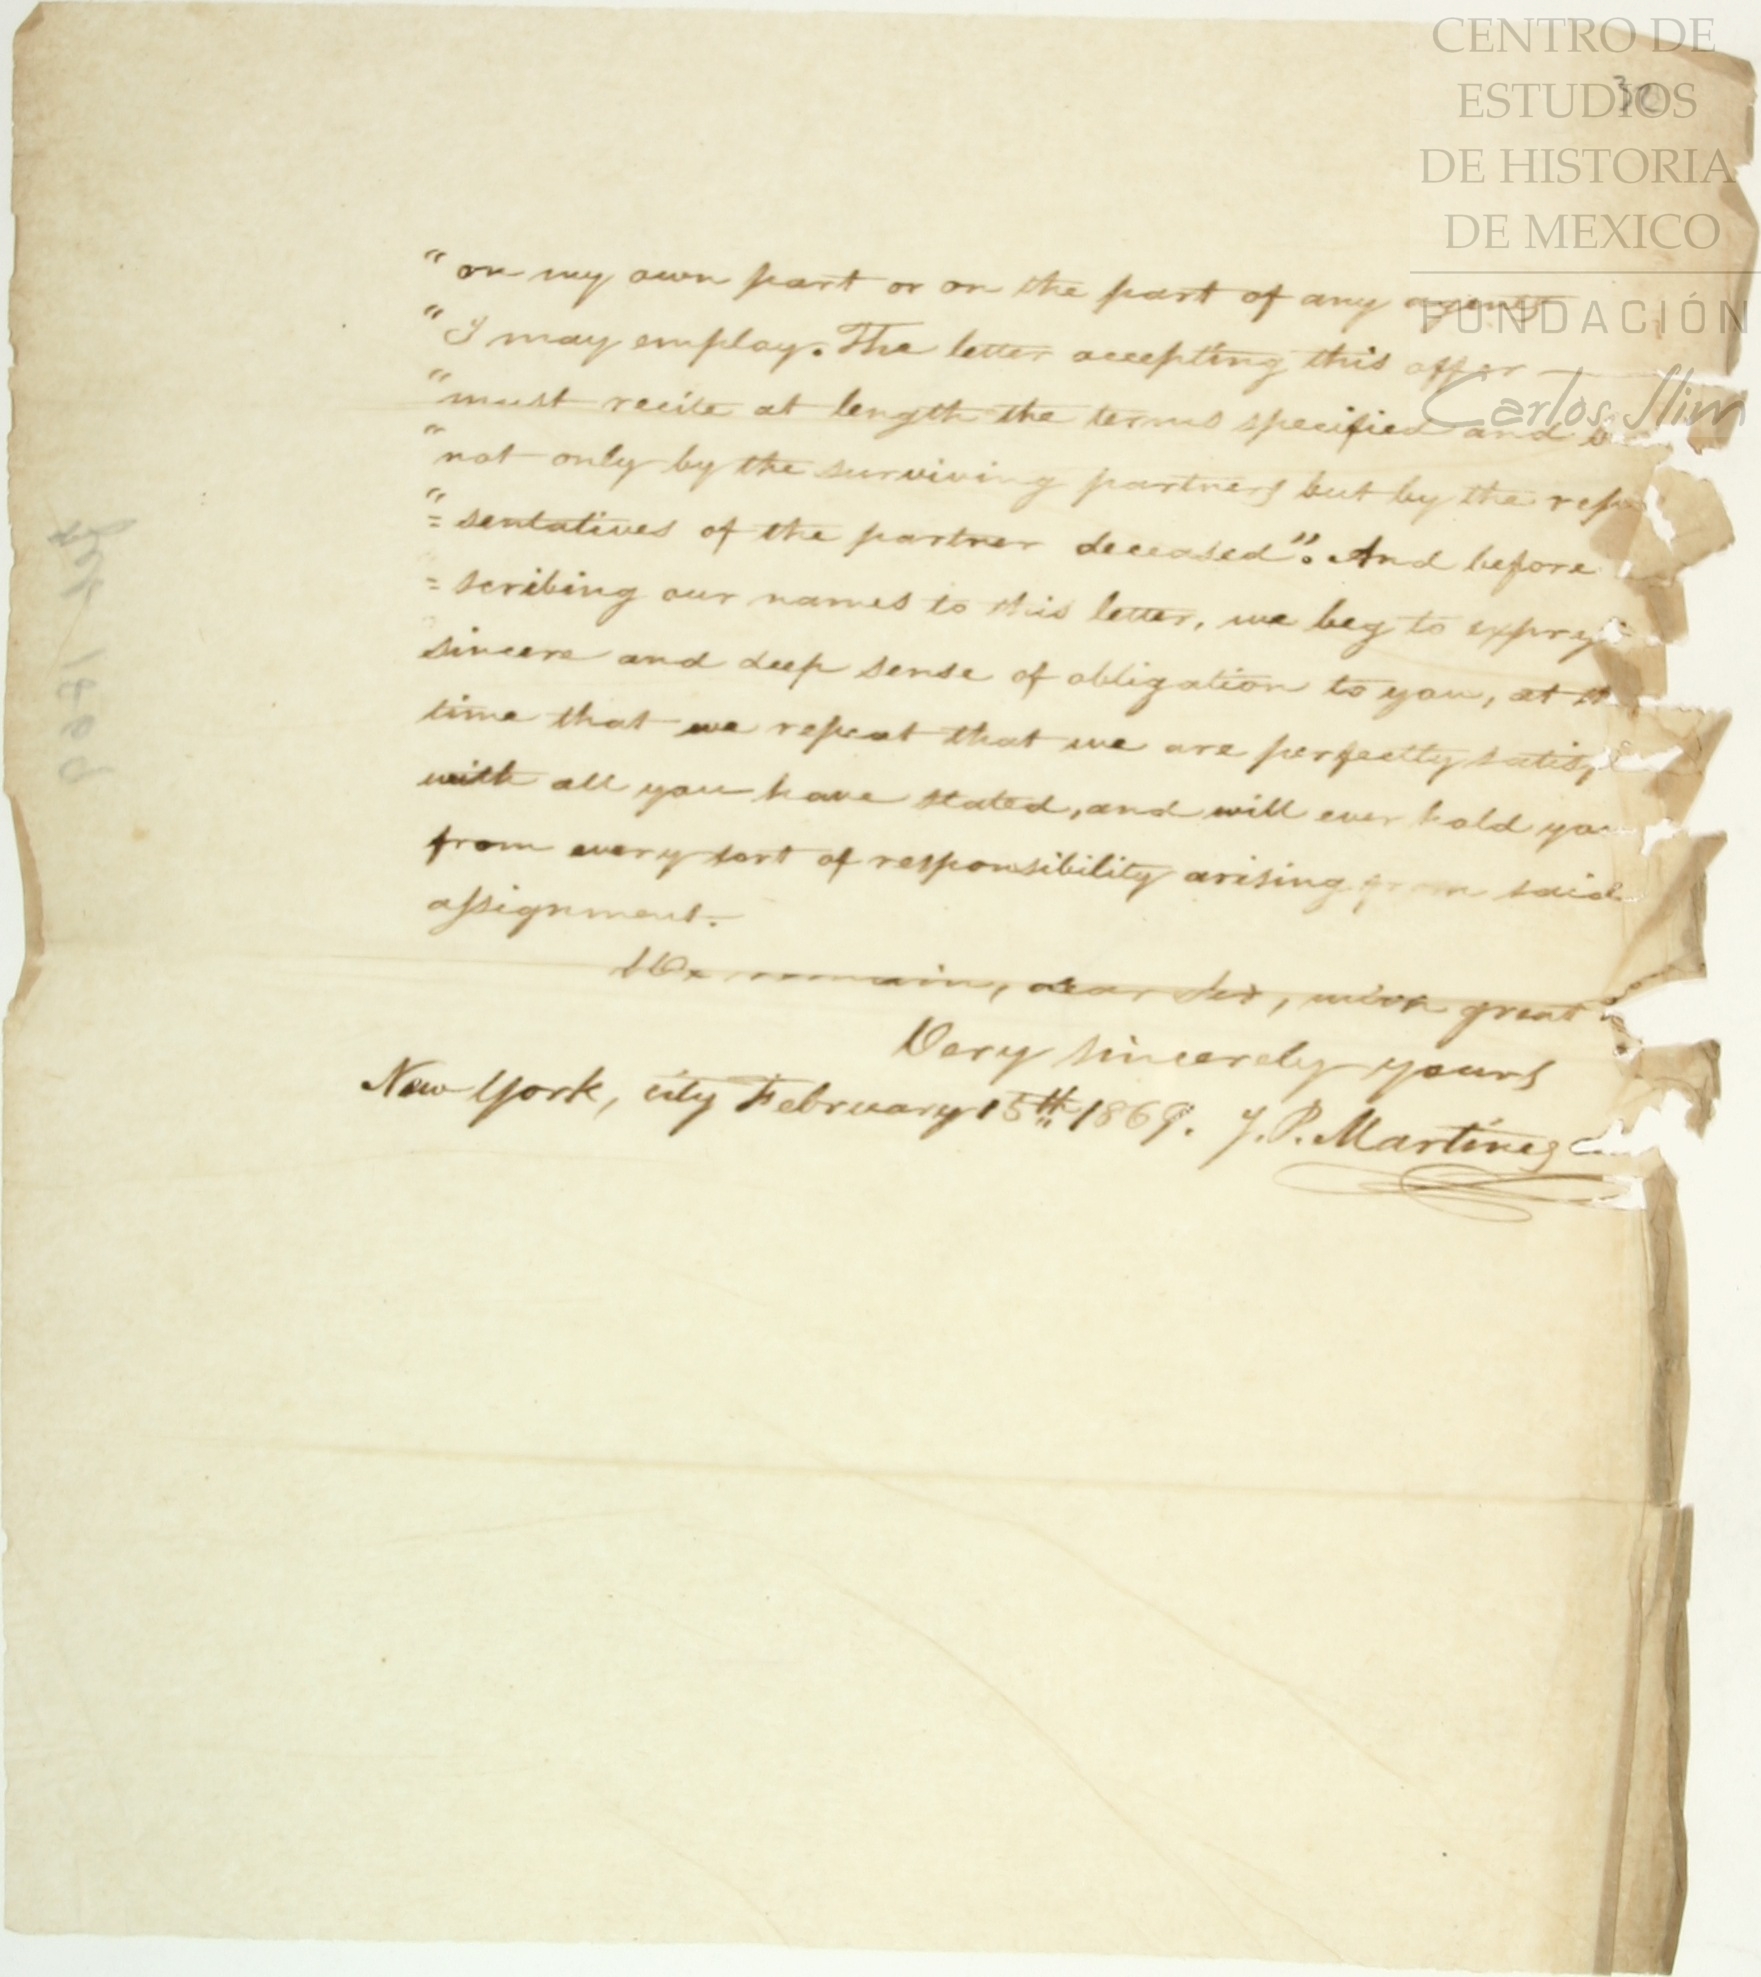 CENTRO DE
ESTUDIOS
DE HISTORIA
DE MEXICO
FUNDACIÓN
Carlos Slim
"on my own part or on the part of any agents
"I may employ. The letter accepting this offer
"must recite at length the terms specified and
"not only by the surviving partners but by the repre
"=sentatives of the partner deceased". And before
=scribing our names to this letter, we beg to express
sincere and deep sense of obligation to you, at th
time that we repeat that we are perfectly satis
with all you have stated, and will ever hold you
from every sort of responsibility arising from said
assignment.
We remain, dear Sir, with great
Very sincerely yours
New York, city February 15th 1869. J. P. Martinez